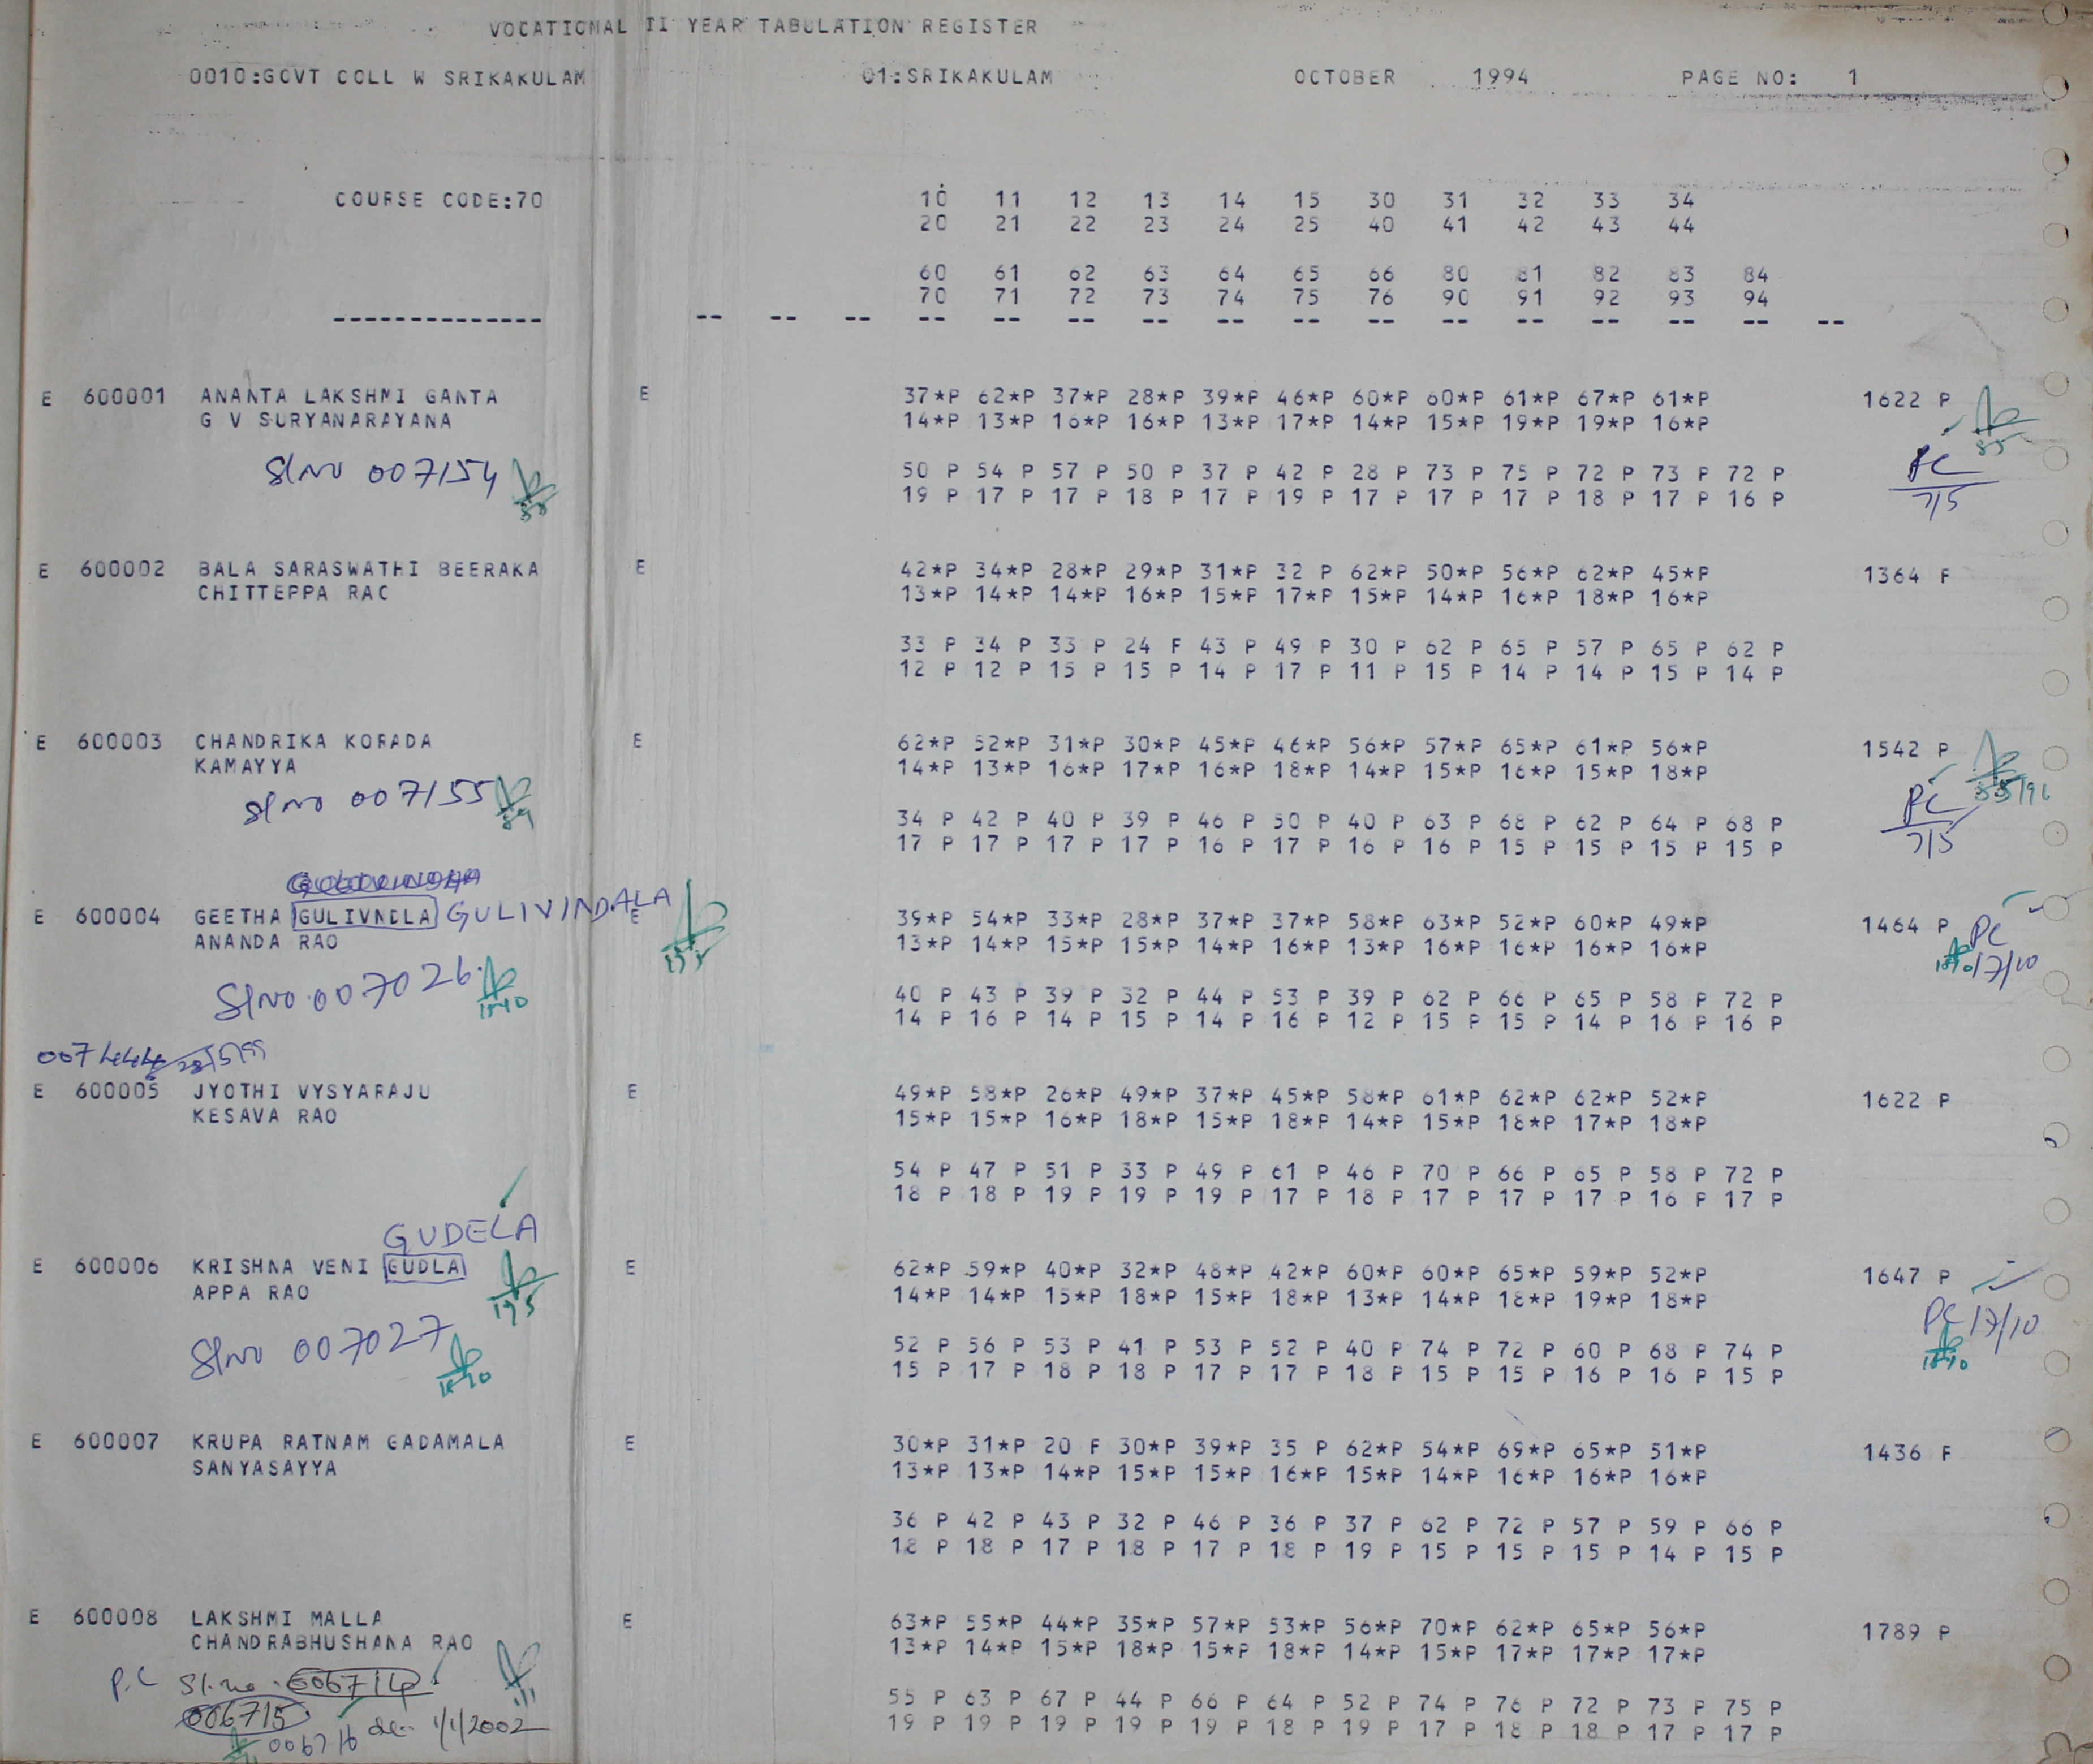 VOCATIONAL II YEAR TABULATION REGISTER
0010:GOVT COLL W SRIKAKULAM 01:SRIKAKULAM OCTOBER 1994 PAGE NO: 1
COURSE CODE:70 10 11 12 13 14 15 30 31 32 33 34
20 21 22 23 24 25 40 41 42 43 44
60 61 62 63 64 65 66 80 81 82 83 84
70 71 72 73 74 75 76 90 91 92 93 94
-------------- -- -- -- -- -- -- -- -- -- -- -- -- -- -- -- --
E 600001 ANANTA LAKSHMI GANTA E 37*P 62*P 37*P 28*P 39*P 46*P 60*P 60*P 61*P 67*P 61*P 1622 P
G V SURYANARAYANA 14*P 13*P 16*P 16*P 13*P 17*P 14*P 15*P 19*P 19*P 16*P
Sl No 007154 50 P 54 P 57 P 50 P 37 P 42 P 28 P 73 P 75 P 72 P 73 P 72 P PC
19 P 17 P 17 P 18 P 17 P 19 P 17 P 17 P 17 P 18 P 17 P 16 P 7/5
E 600002 BALA SARASWATHI BEERAKA E 42*P 34*P 28*P 29*P 31*P 32 P 62*P 50*P 56*P 62*P 45*P 1364 F
CHITTEPPA RAO 13*P 14*P 14*P 16*P 15*P 17*P 15*P 14*P 16*P 18*P 16*P
33 P 34 P 33 P 24 F 43 P 49 P 30 P 62 P 65 P 57 P 65 P 62 P
12 P 12 P 15 P 15 P 14 P 17 P 11 P 15 P 14 P 14 P 15 P 14 P
E 600003 CHANDRIKA KORADA E 62*P 52*P 31*P 30*P 45*P 46*P 56*P 57*P 65*P 61*P 56*P 1542 P
KAMAYYA 14*P 13*P 16*P 17*P 16*P 18*P 14*P 15*P 16*P 15*P 18*P
Sl No 007155 34 P 42 P 40 P 39 P 46 P 50 P 40 P 63 P 68 P 62 P 64 P 68 P PC
17 P 17 P 17 P 17 P 16 P 17 P 16 P 16 P 15 P 15 P 15 P 15 P 7/5
E 600004 GEETHA GULIVNDLA GULIVINDALA E 39*P 54*P 33*P 28*P 37*P 37*P 58*P 63*P 52*P 60*P 49*P 1464 P PC
ANANDA RAO 13*P 14*P 15*P 15*P 14*P 16*P 13*P 16*P 16*P 16*P 16*P 17/10
Sl No 007026 40 P 43 P 39 P 32 P 44 P 53 P 39 P 62 P 66 P 65 P 58 P 72 P
14 P 16 P 14 P 15 P 14 P 16 P 12 P 15 P 15 P 14 P 16 P 16 P
007444
E 600005 JYOTHI VYSYARAJU E 49*P 58*P 26*P 49*P 37*P 45*P 58*P 61*P 62*P 62*P 52*P 1622 P
KESAVA RAO 15*P 15*P 16*P 18*P 15*P 18*P 14*P 15*P 18*P 17*P 18*P
54 P 47 P 51 P 33 P 49 P 61 P 46 P 70 P 66 P 65 P 58 P 72 P
18 P 18 P 19 P 19 P 19 P 17 P 18 P 17 P 17 P 17 P 16 P 17 P
GUDELA
E 600006 KRISHNA VENI GUDLA E 62*P 59*P 40*P 32*P 48*P 42*P 60*P 60*P 65*P 59*P 52*P 1647 P
APPA RAO 14*P 14*P 15*P 18*P 15*P 18*P 13*P 14*P 18*P 19*P 18*P PC 17/10
Sl No 007027 52 P 56 P 53 P 41 P 53 P 52 P 40 P 74 P 72 P 60 P 68 P 74 P
15 P 17 P 18 P 18 P 17 P 17 P 18 P 15 P 15 P 16 P 16 P 15 P
E 600007 KRUPA RATNAM GADAMALA E 30*P 31*P 20 F 30*P 39*P 35 P 62*P 54*P 69*P 65*P 51*P 1436 F
SANYASAYYA 13*P 13*P 14*P 15*P 15*P 16*P 15*P 14*P 16*P 16*P 16*P
36 P 42 P 43 P 32 P 46 P 36 P 37 P 62 P 72 P 57 P 59 P 66 P
18 P 18 P 17 P 18 P 17 P 18 P 19 P 15 P 15 P 15 P 14 P 15 P
E 600008 LAKSHMI MALLA E 63*P 55*P 44*P 35*P 57*P 53*P 56*P 70*P 62*P 65*P 56*P 1789 P
CHANDRABHUSHANA RAO 13*P 14*P 15*P 18*P 15*P 18*P 14*P 15*P 17*P 17*P 17*P
P.C Sl. no. 006714 55 P 63 P 67 P 44 P 66 P 64 P 52 P 74 P 76 P 72 P 73 P 75 P
006715 19 P 19 P 19 P 19 P 19 P 18 P 19 P 17 P 18 P 18 P 17 P 17 P
006716 1/1/2002